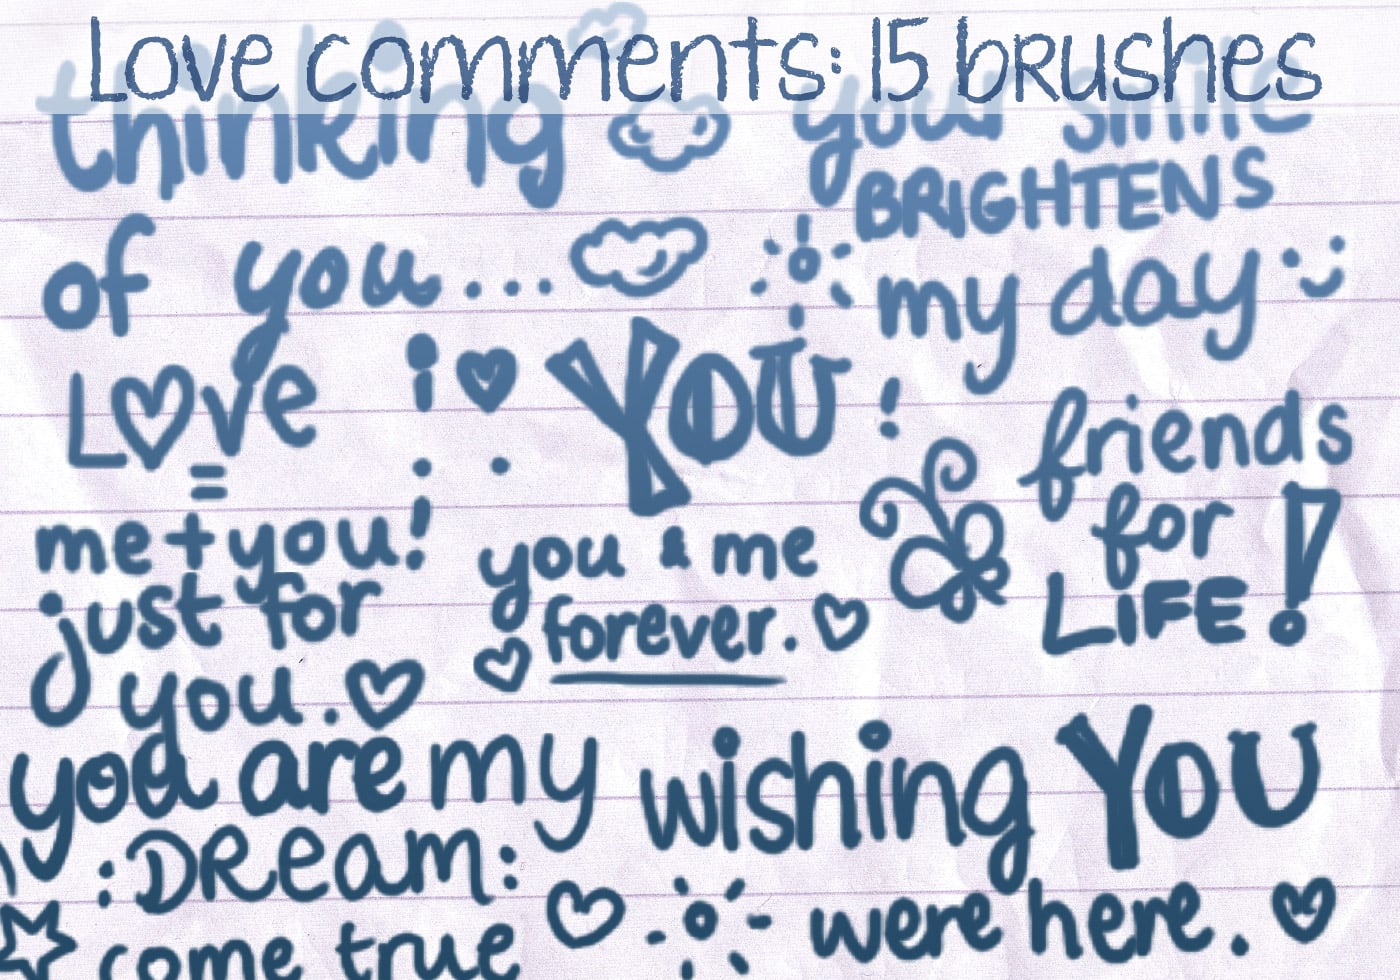 Love comments: 15 brushes
thinking
of you...
your smile
BRIGHTENS
my day
Love
=
me + you!
i ♥ YOU!
friends
for
LIFE!
just for
you.
you & me
forever.
you are my
:DReam:
come true
wishing YOU
were here.